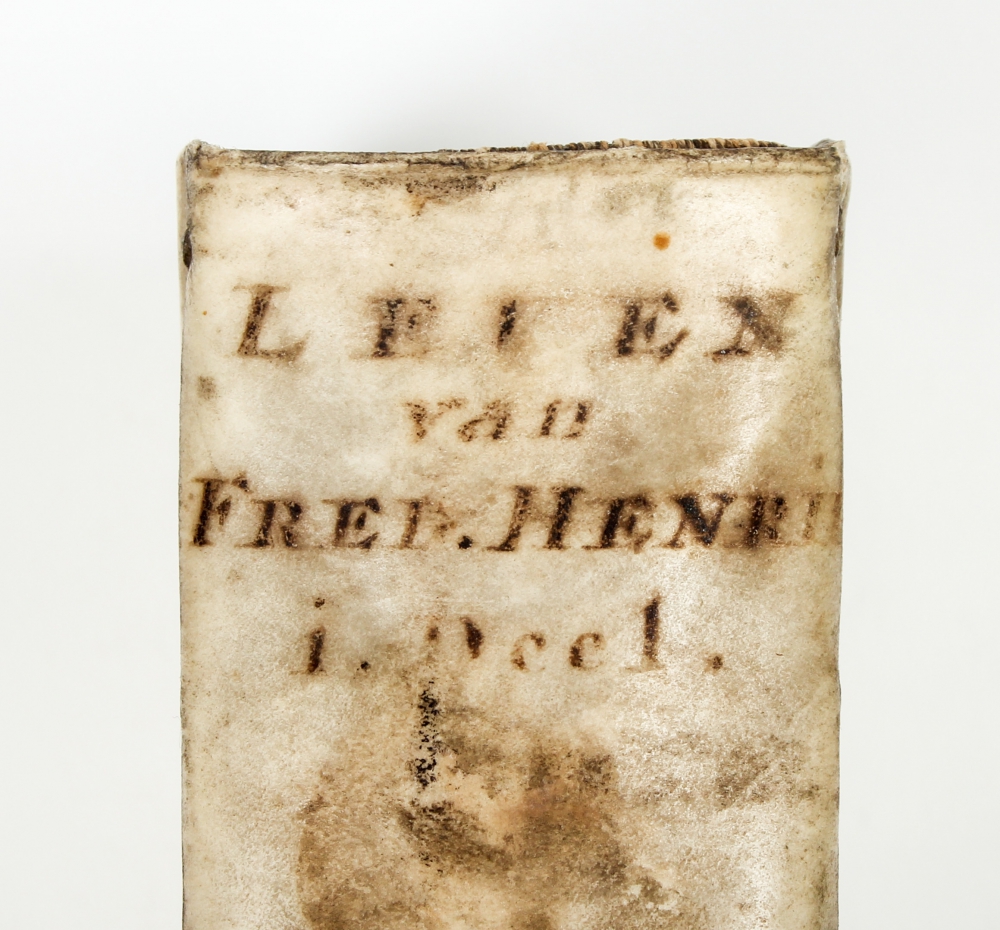 LEVEN
van
FRED. HENRI
i. Deel.